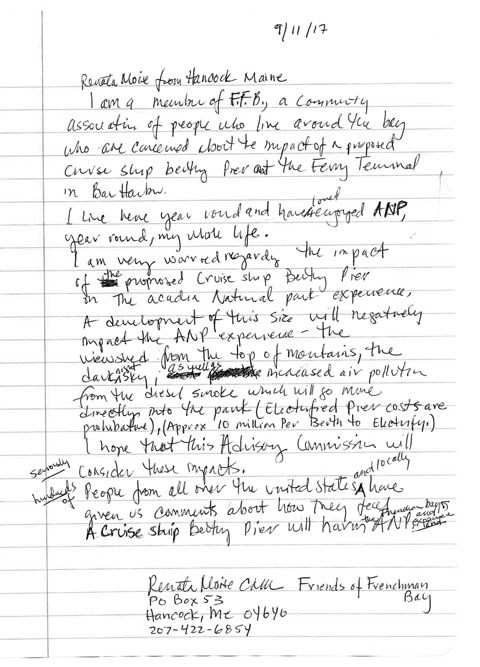 9/11/17
Renata Moise from Hancock Maine
I am a member of F.F.B., a Community
Association of people who live around the bay
who are concerned about the impact of a proposed
Cruise ship berthing Pier at the Ferry Terminal
in Bar Harbor.
I live here year round and have loved & enjoyed ANP,
year round, my whole life.
I am very worried regarding the impact
of the proposed Cruise ship Berthing Pier
on The acadia National park experience.
A development of this size will negatively
impact the ANP experience - the
viewshed from the top of mountains, the
dark night sky, as well as increased air pollution
from the diesel smoke which will go more
directly into the park (Electrified Pier costs are
prohibative), (Approx 10 million Per Berth to Electrify.)
I hope that this Advisory Commission will
seriously Consider these impacts.
hundreds of People from all over the United States and locally have
given us comments about how they feel
A Cruise ship Berthing Pier will harm the Frenchman Bay & ANP experience
Renata Moise CNM Friends of Frenchman
Bay
PO Box 53
Hancock, Me 04640
207-422-6854